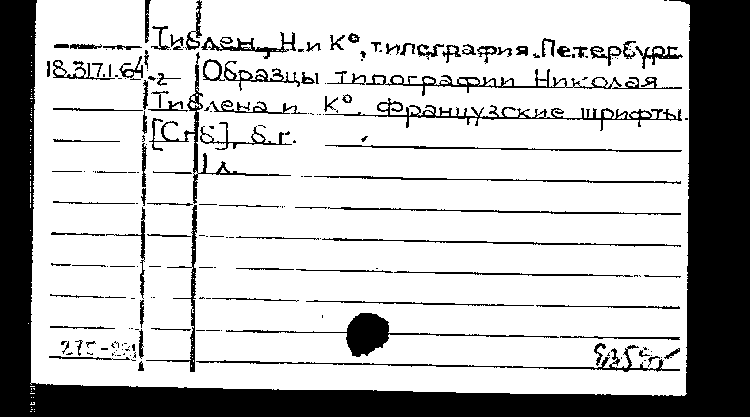 Тиблен, Н. и К°, типография. Петербург.
18.317.1.64-2 Образцы типографии Николая
Тиблена и К°. Французские шрифты.
[Спб], б.г.
1 л.